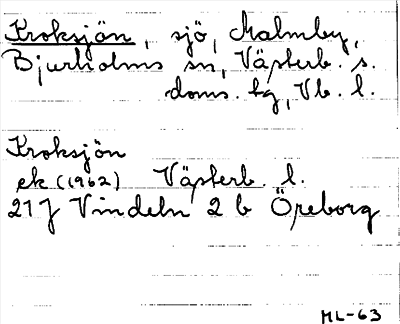 Kroksjön, sjö, Malmby,
Bjurholms sn, Västerb. s.
doms. tg, Vb. l.
Kroksjön
ek (1962) Västerb. l.
21 J Vindeln 2 b Öreborg
ML-63